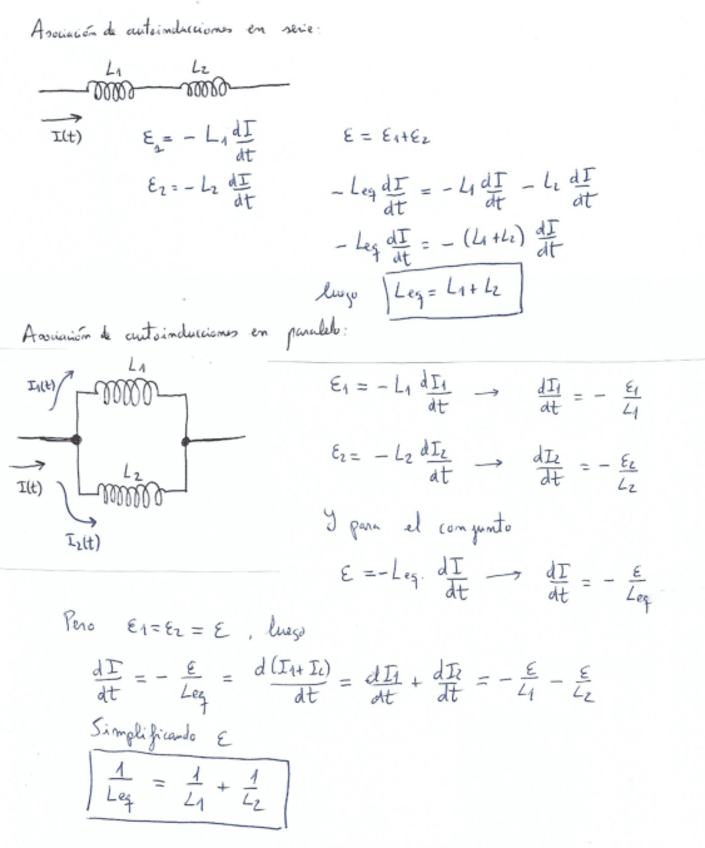 Asociación de autoinducciones en serie:
L1 L2
I(t)
ε1 = - L1 dI/dt
ε2 = - L2 dI/dt
ε = ε1+ε2
- Leq dI/dt = - L1 dI/dt - L2 dI/dt
- Leq dI/dt = - (L1+L2) dI/dt
luego Leq = L1 + L2
Asociación de autoinducciones en paralelo:
I1(t)
L1
L2
I(t)
I2(t)
ε1 = - L1 dI1/dt → dI1/dt = - ε1/L1
ε2 = - L2 dI2/dt → dI2/dt = - ε2/L2
Y para el conjunto
ε = -Leq. dI/dt → dI/dt = - ε/Leq
Pero ε1 = ε2 = ε , luego
dI/dt = - ε/Leq = d(I1+I2)/dt = dI1/dt + dI2/dt = - ε/L1 - ε/L2
Simplificando ε
1/Leq = 1/L1 + 1/L2